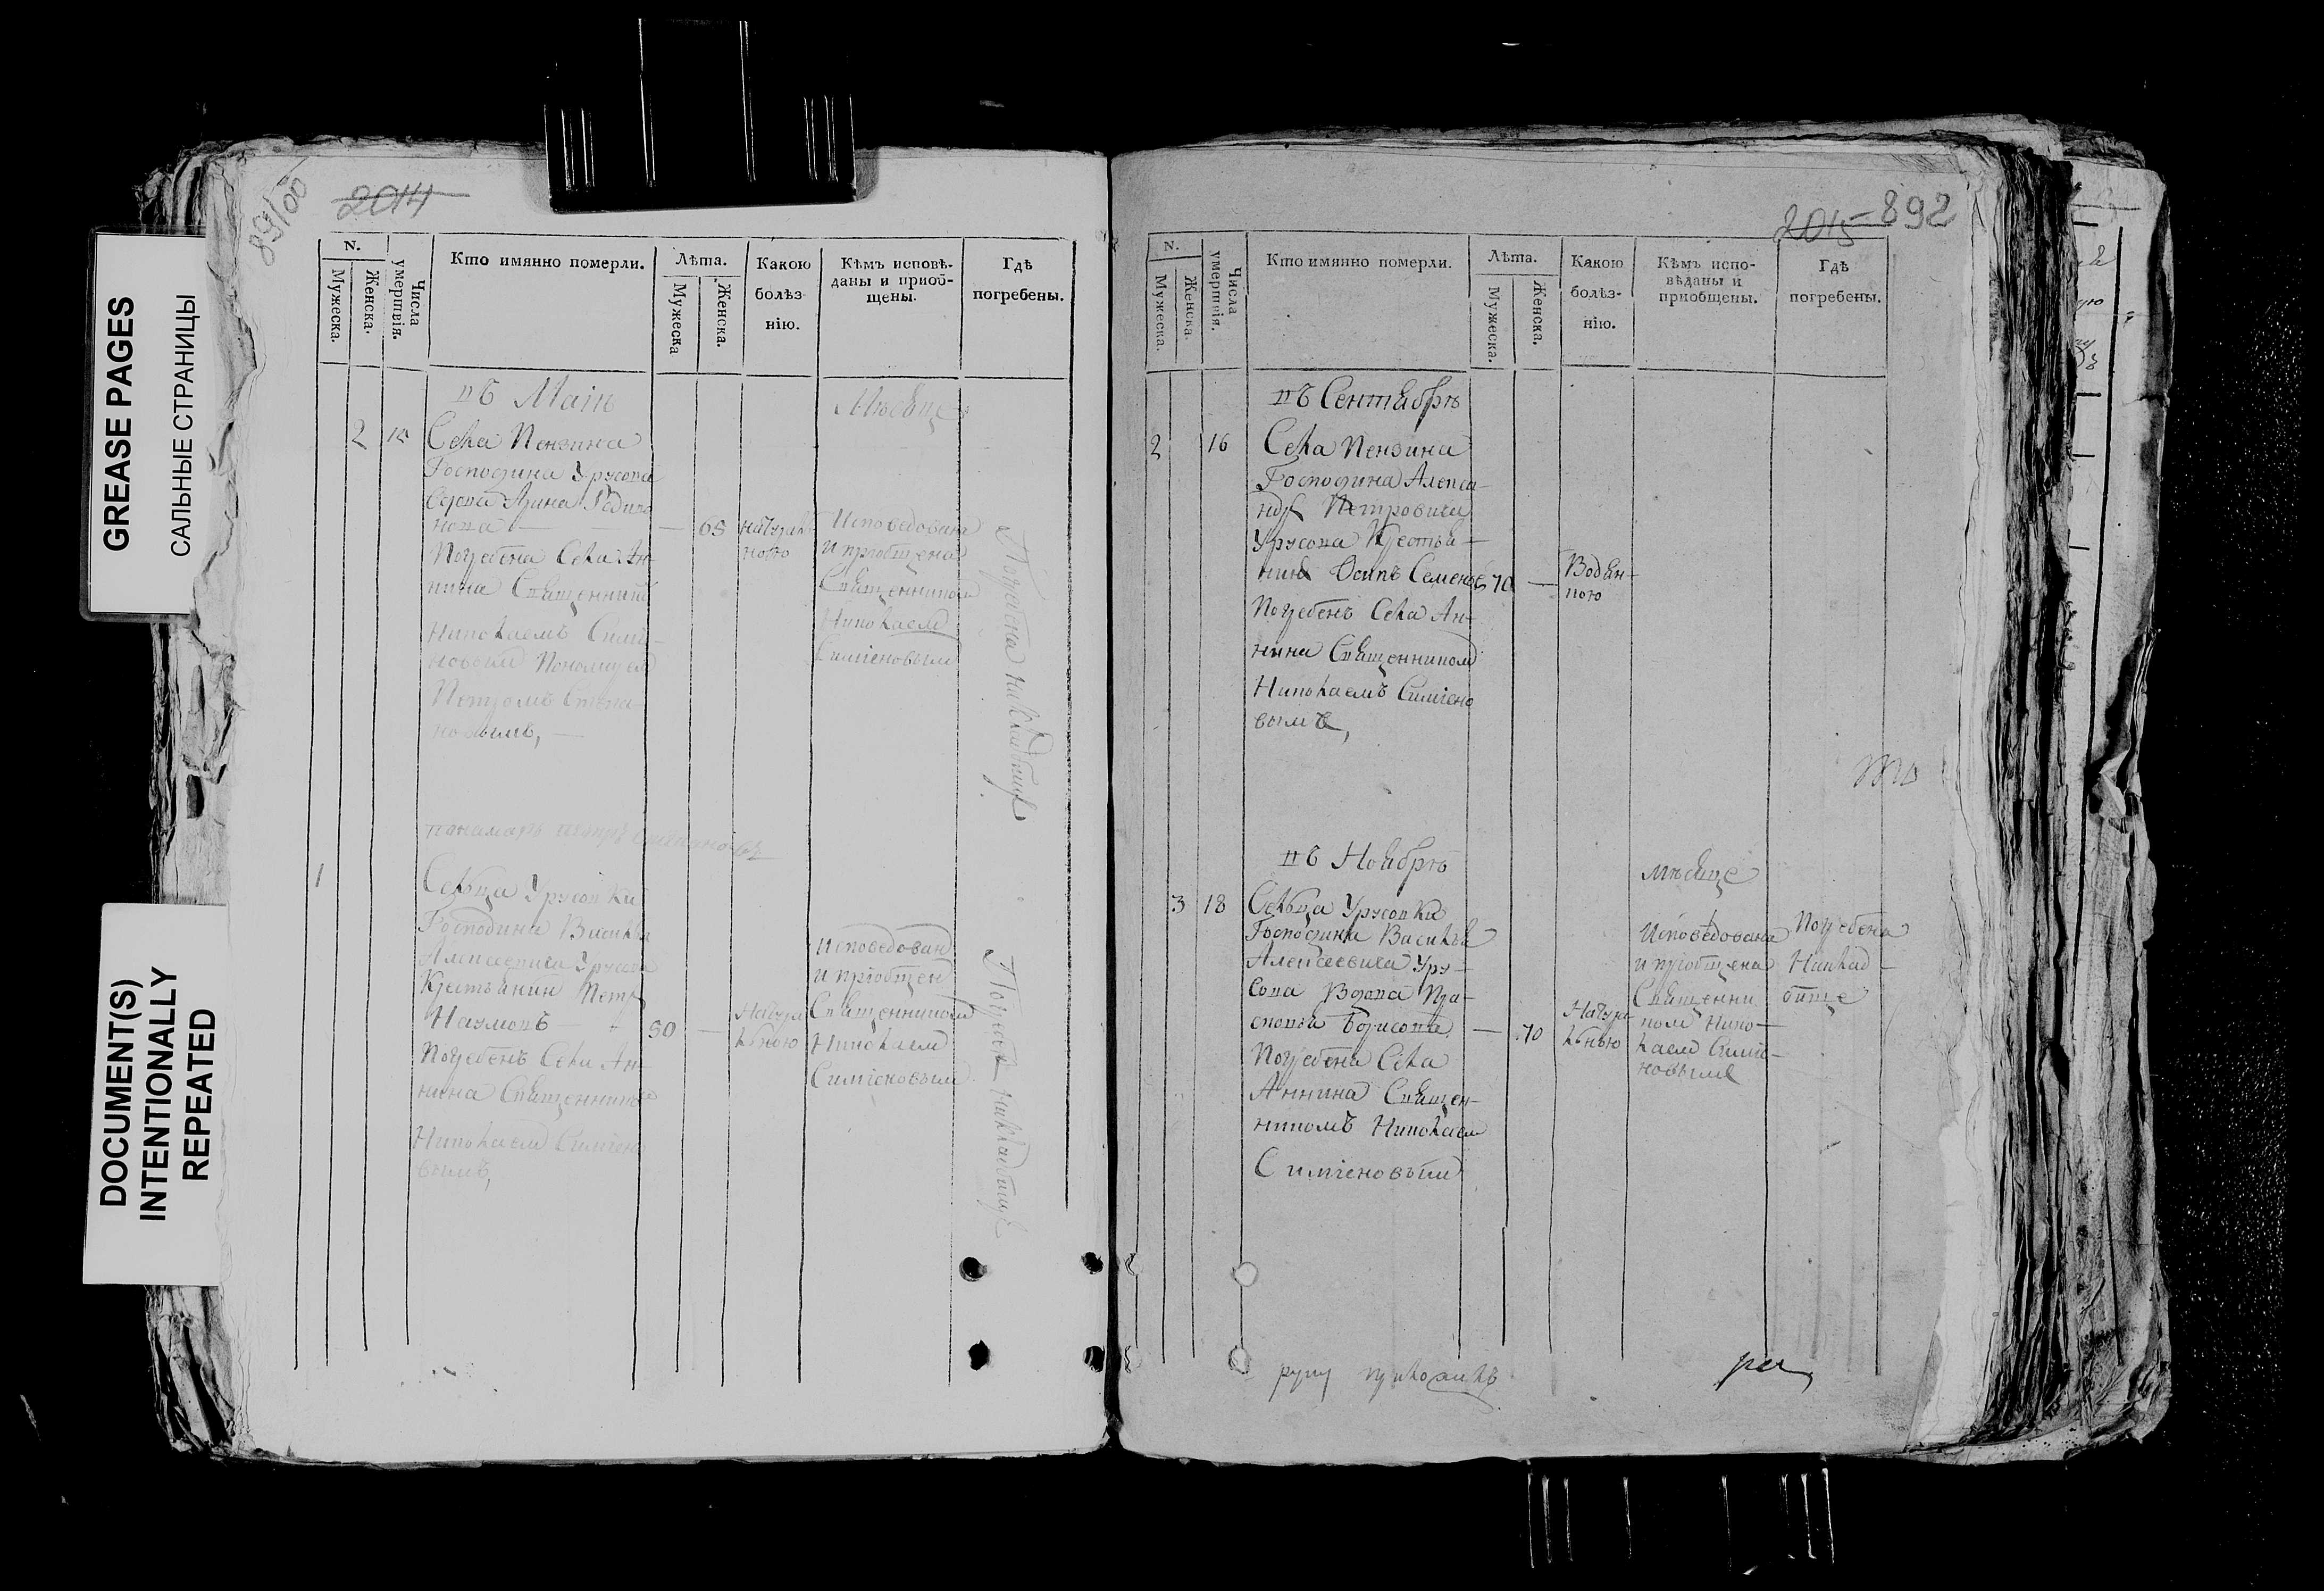 GREASE PAGES
САЛЬНЫЕ СТРАНИЦЫ
DOCUMENT(S)
INTENTIONALLY
REPEATED
2014
N.
Мужеска.
Женска.
Числа умертвія.
Кто имянно померли.
Лѣта.
Мужеска
Женска.
Какою болѣз-
нію.
Кѣмъ исповѣ-
даны и пріоб-
щены.
Гдѣ
погребены.
въ Маіи
Мѣсяце
2
Села Пензина
Господина Урусова
Вдова Арина Родиво
нова — — 65 натурал-
ною
Погребена Села Ан-
нина Священником
Николаемъ Симіо-
новым Пономарем
Петромъ Степа-
новымъ, —
Исповедована
и пріобщена
Священником
Николаем
Симіеновым
Погребена на кладбище
Сельца Урусовки
Господина Василья
Алексеевича Урусова
Крестьянин Петр
Наумовъ — 50 — Натура
льною
Погребенъ Села Ан-
нина Священником
Николаем Симіено
вымъ,
исповедован
и пріобщен
Священником
Николаем
Симіеновым
Погребен на кладбище
2015 892
N.
Мужеска.
Женска.
Числа умертвія.
Кто имянно померли.
Лѣта.
Мужеска.
Женска.
Какою
болѣз-
нію.
Кѣмъ испо-
вѣданы и
пріобщены.
Гдѣ
погребены.
въ Сентябрѣ
2 16 Села Пензина
Господина Алекса-
ндр Петровича
Урусова Крестья-
нинъ Осипъ Семенов 70 — Водян-
ною
Погребенъ Села Ан-
нина Священником
Николаемъ Симіено
вымъ,
въ Ноябрѣ
мѣсяце
3 18 Сельца Урусовки
Господина Василья
Алексеевича Уру-
сова Вдова Пра-
сковья Борисова — 70 Натура
льною
Погребена Села
Аннина Священ-
никомъ Николаем
Симіеновым
Исповедована
и пріобщена
Священни
ком Нико-
лаем Симіе-
новым
Погребена
На клад-
бище
руку приложилъ